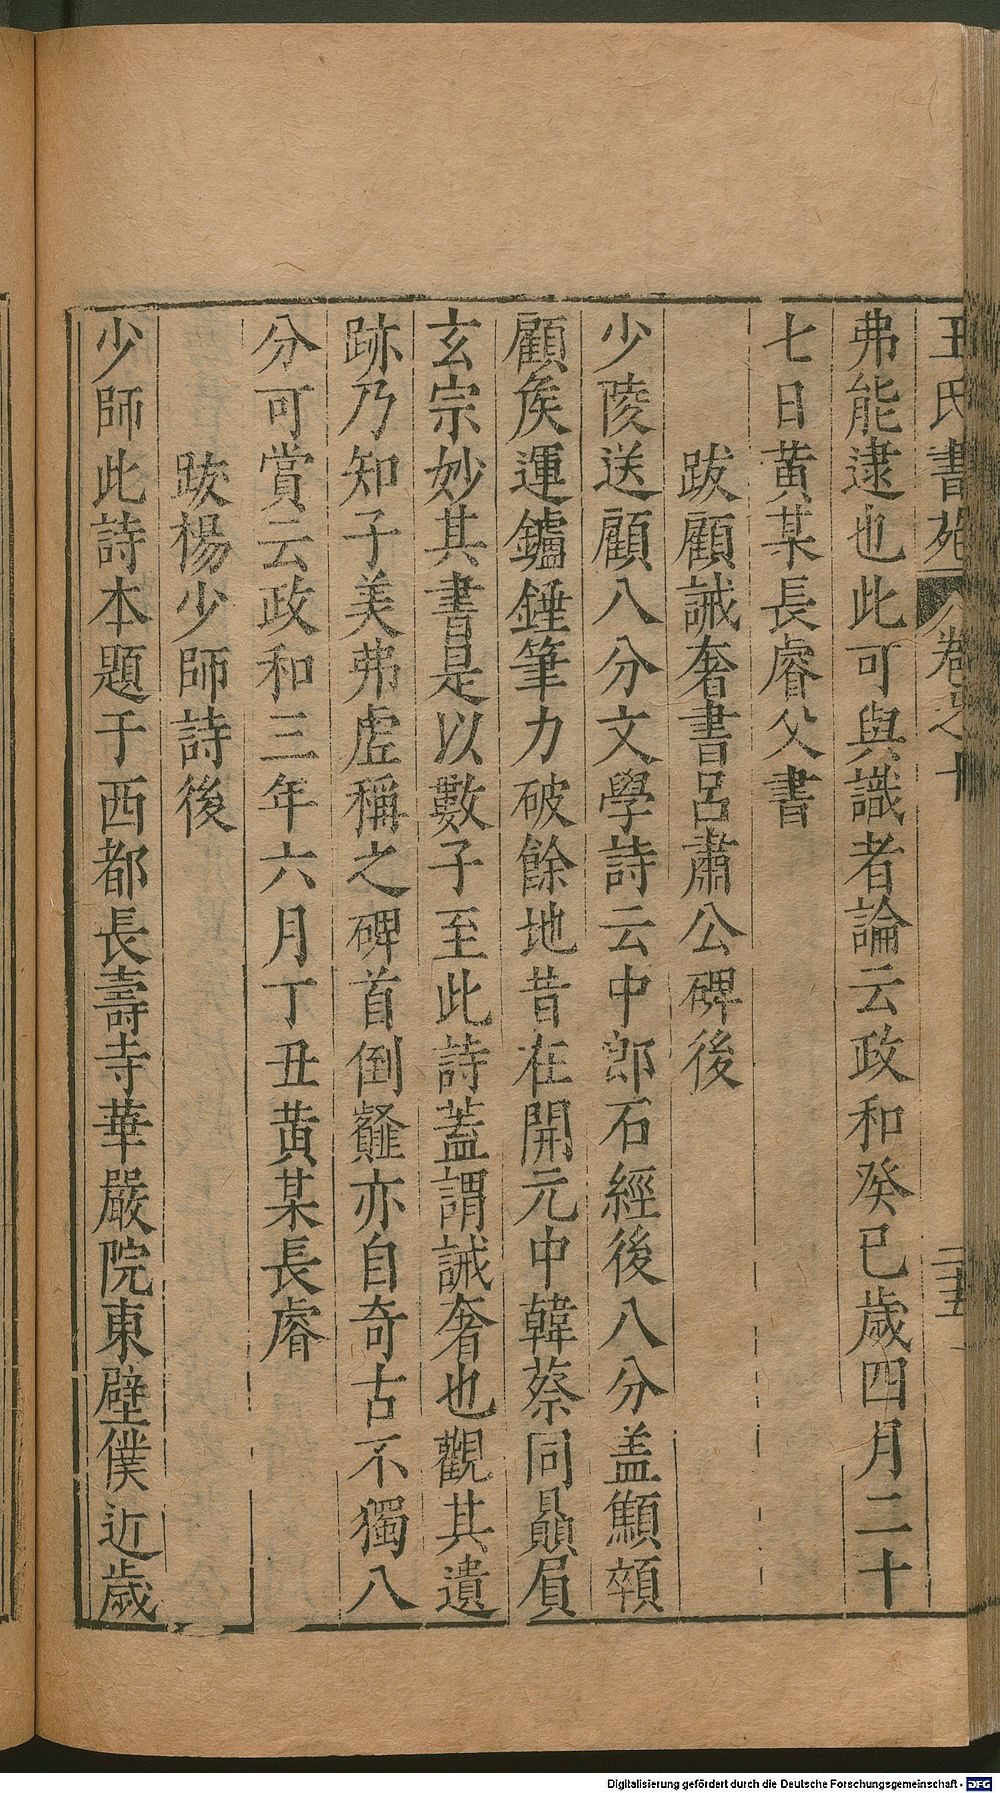 王氏書苑 卷之十 二十五
弗能逮也此可與識者論云政和癸巳歲四月二十
七日黃某長睿父書
跋顧誡奢書呂肅公碑後
少陵送顧八分文學詩云中郎石經後八分盖顦顇
顧矦運鑪錘筆力破餘地昔在開元中韓蔡同贔屓
玄宗妙其書是以數子至此詩蓋謂誡奢也觀其遺
跡乃知子美弗虛稱之碑首倒薤亦自奇古不獨八
分可賞云政和三年六月丁丑黃某長睿
跋楊少師詩後
少師此詩本題于西都長壽寺華嚴院東壁僕近歲
Digitalisierung gefördert durch die Deutsche Forschungsgemeinschaft - DFG